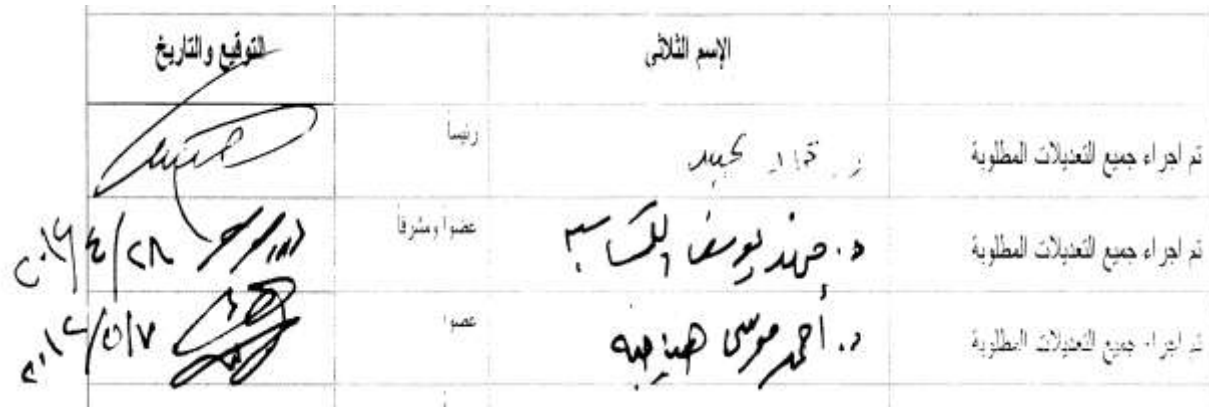 الإسم الثلاثى التوقيع والتاريخ
تم اجراء جميع التعديلات المطلوبة د. عبيد رئيساً
تم اجراء جميع التعديلات المطلوبة د. مهند يوسف عضواً ومشرفاً ٢٠١٢/٤/٢٨
تم اجراء جميع التعديلات المطلوبة د. أحمد موسى عضوا ٢٠١٢/٥/٧